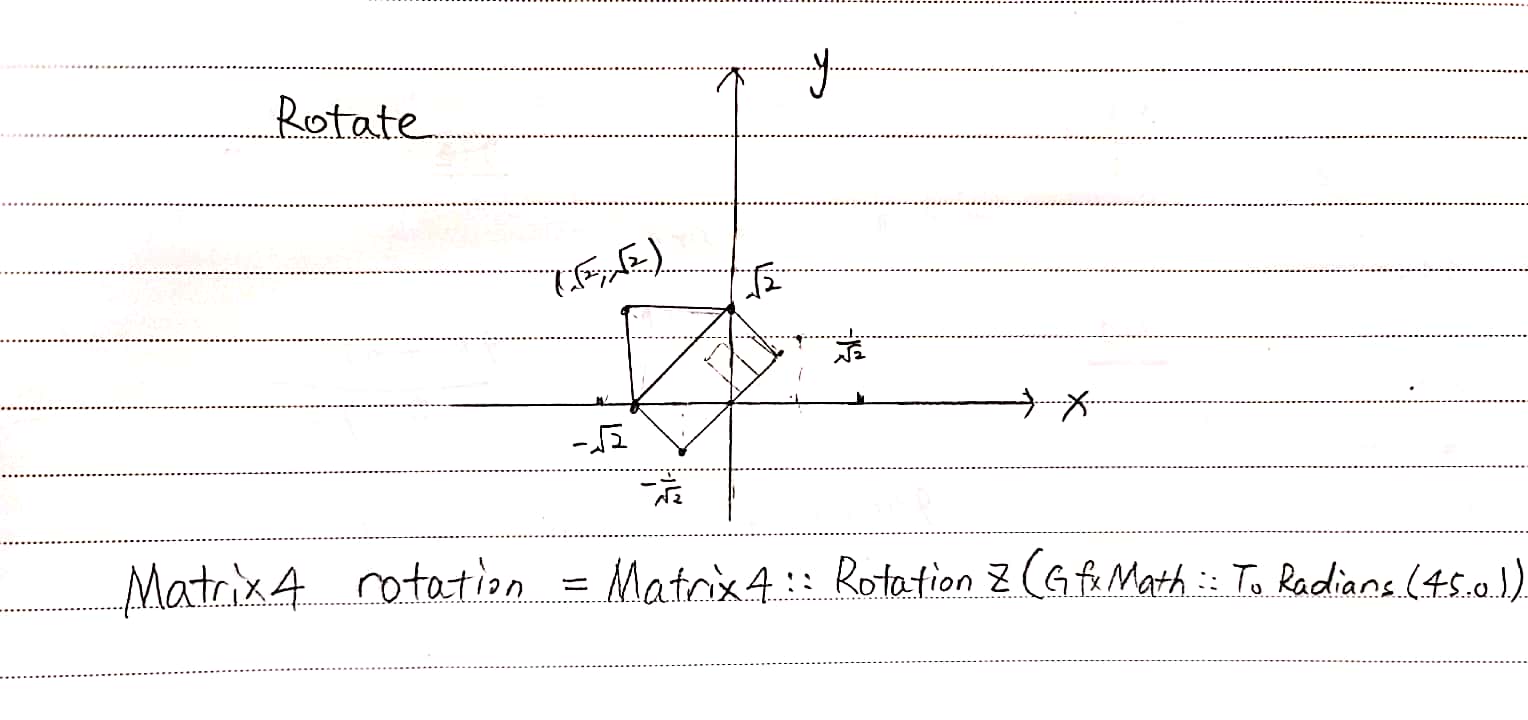 y
Rotate
(√2,√2)
√2
1/√2
x
-√2
-1/√2
Matrix4 rotation = Matrix4:: Rotation Z (GfxMath :: To Radians (45.01))